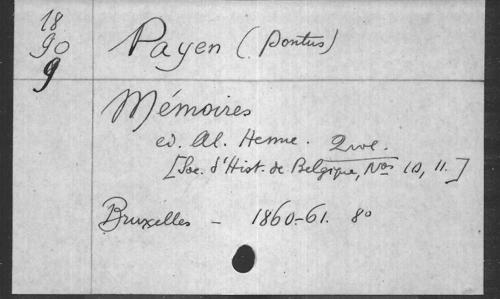 18
90
9
Payen (Pontus)
Mémoires
ed. Al. Henne. 2 vol.
[Soc. d'Hist. de Belgique, Nos 10, 11.]
Bruxelles - 1860-61. 8o